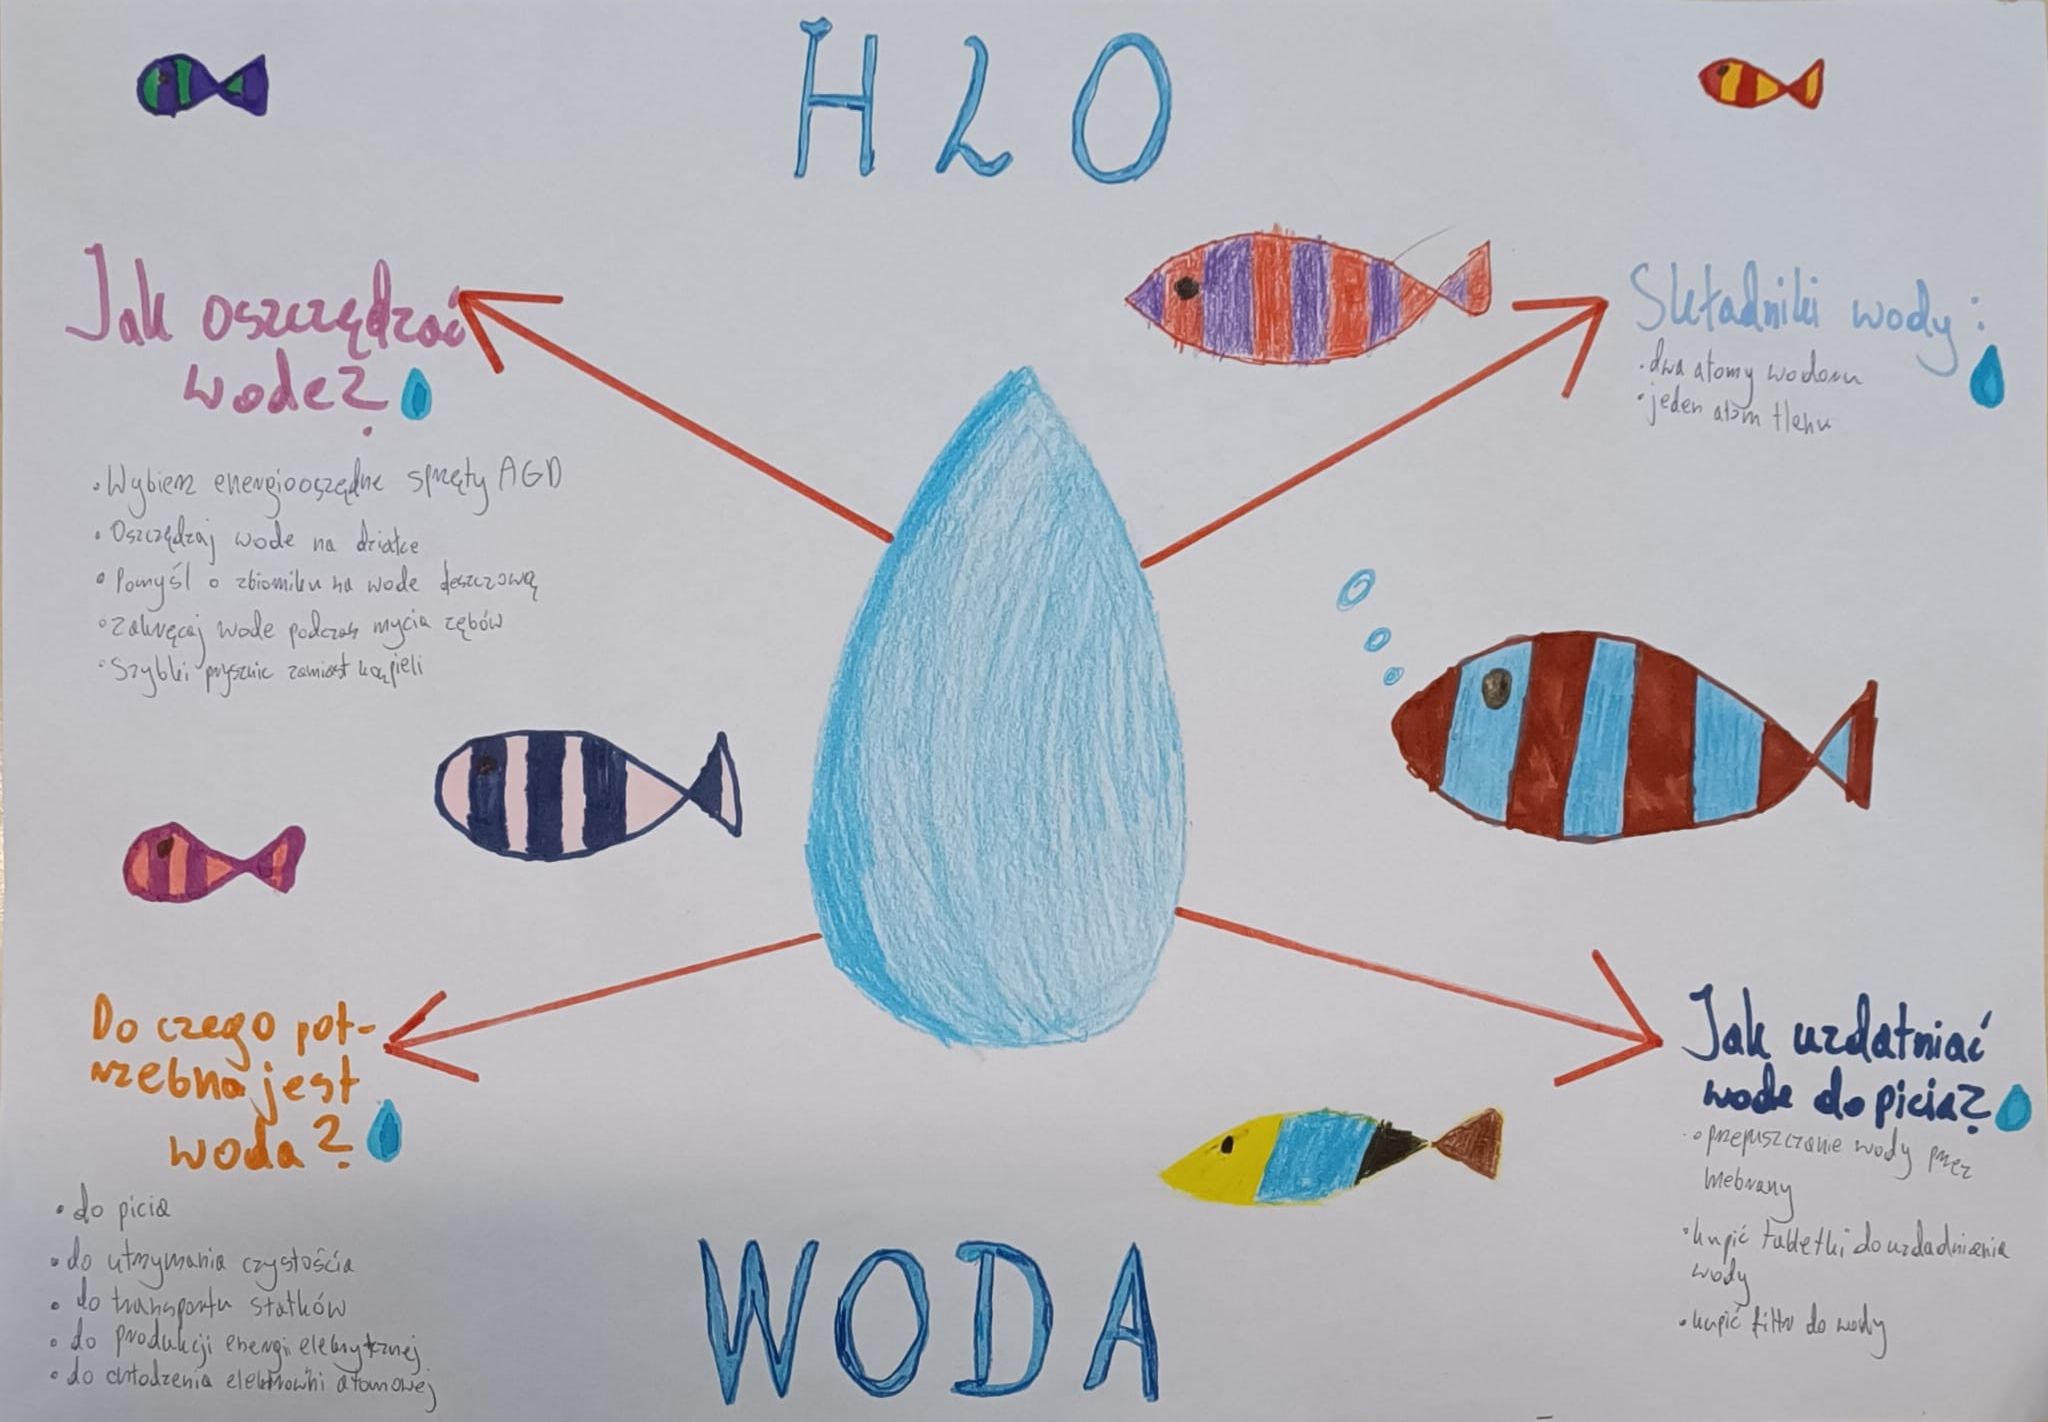 H2O
Jak oszczędzać
wode?
• Wybierz energiooszędne sprzęty AGD
• Oszczędzaj wode na działce
• Pomyśl o zbiorniku na wode deszczową
• Zakręcaj wode podczas mycia zębów
• Szybki prysznic zamiast kąpieli
Składniki wody:
• dwa atomy wodoru
• jeden atom tlenu
Do czego pot-
rzebna jest
woda?
• do picia
• do utrzymania czystościa
• do transportu statków
• do produkcji energi elektrycznej
• do chłodzenia elektrowni atomowej
Jak uzdatniać
wode do picia?
• przepuszczanie wody przez
mebrany
• kupić tabletki do uzdadniania
wody
• kupić filtr do wody
WODA